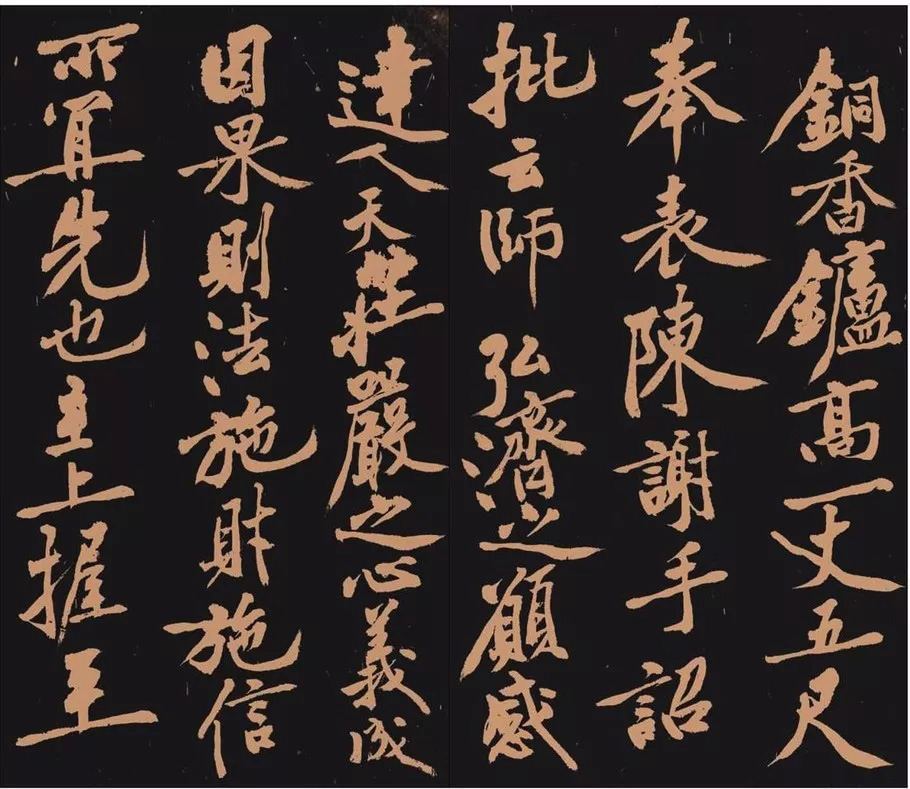 銅香鑪高一丈五尺
奉表陳謝手詔
批云師弘濟之願感
達人天莊嚴之心義成
因果則法施財施信
所宜先也主上握至